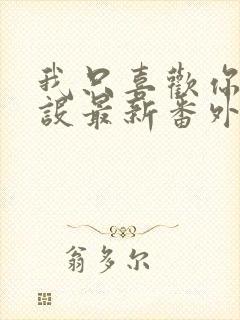 我只喜歡你
設最新番外
翁多尔